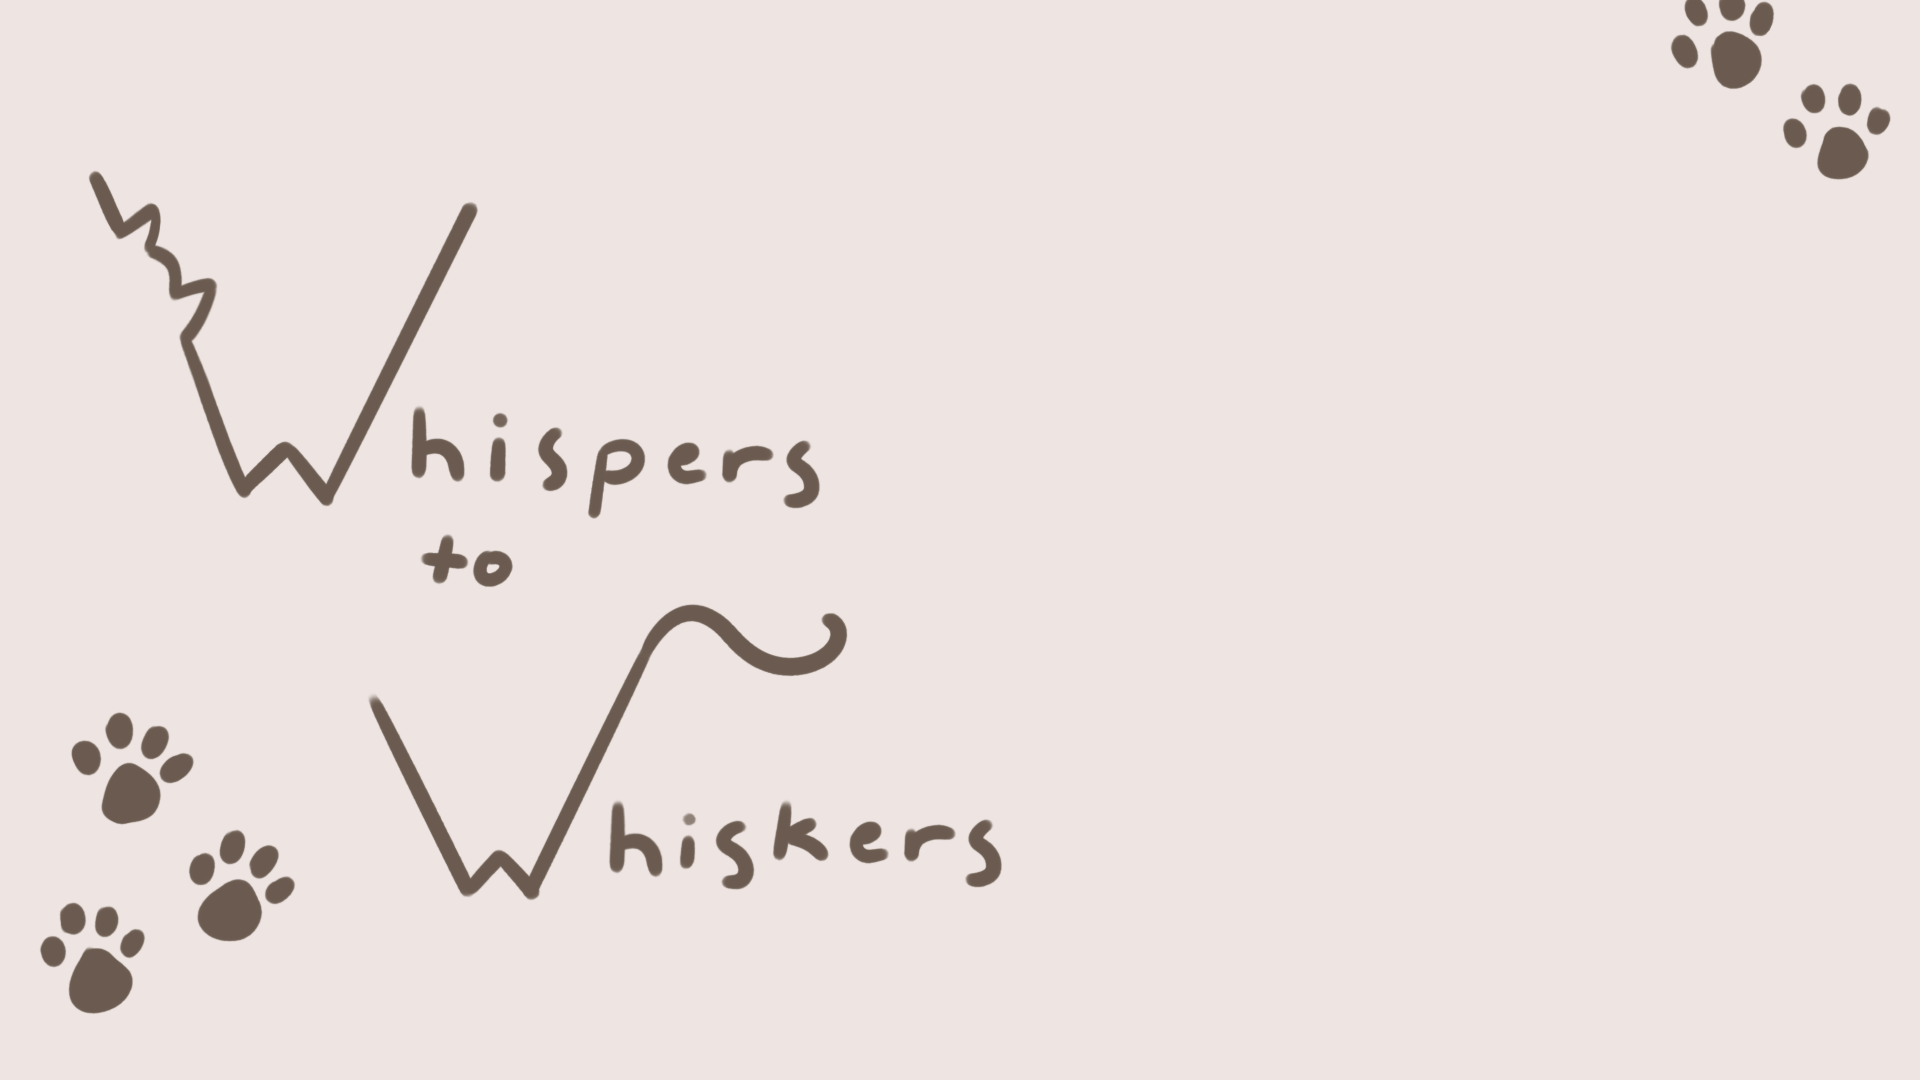 Whispers
to
Whiskers